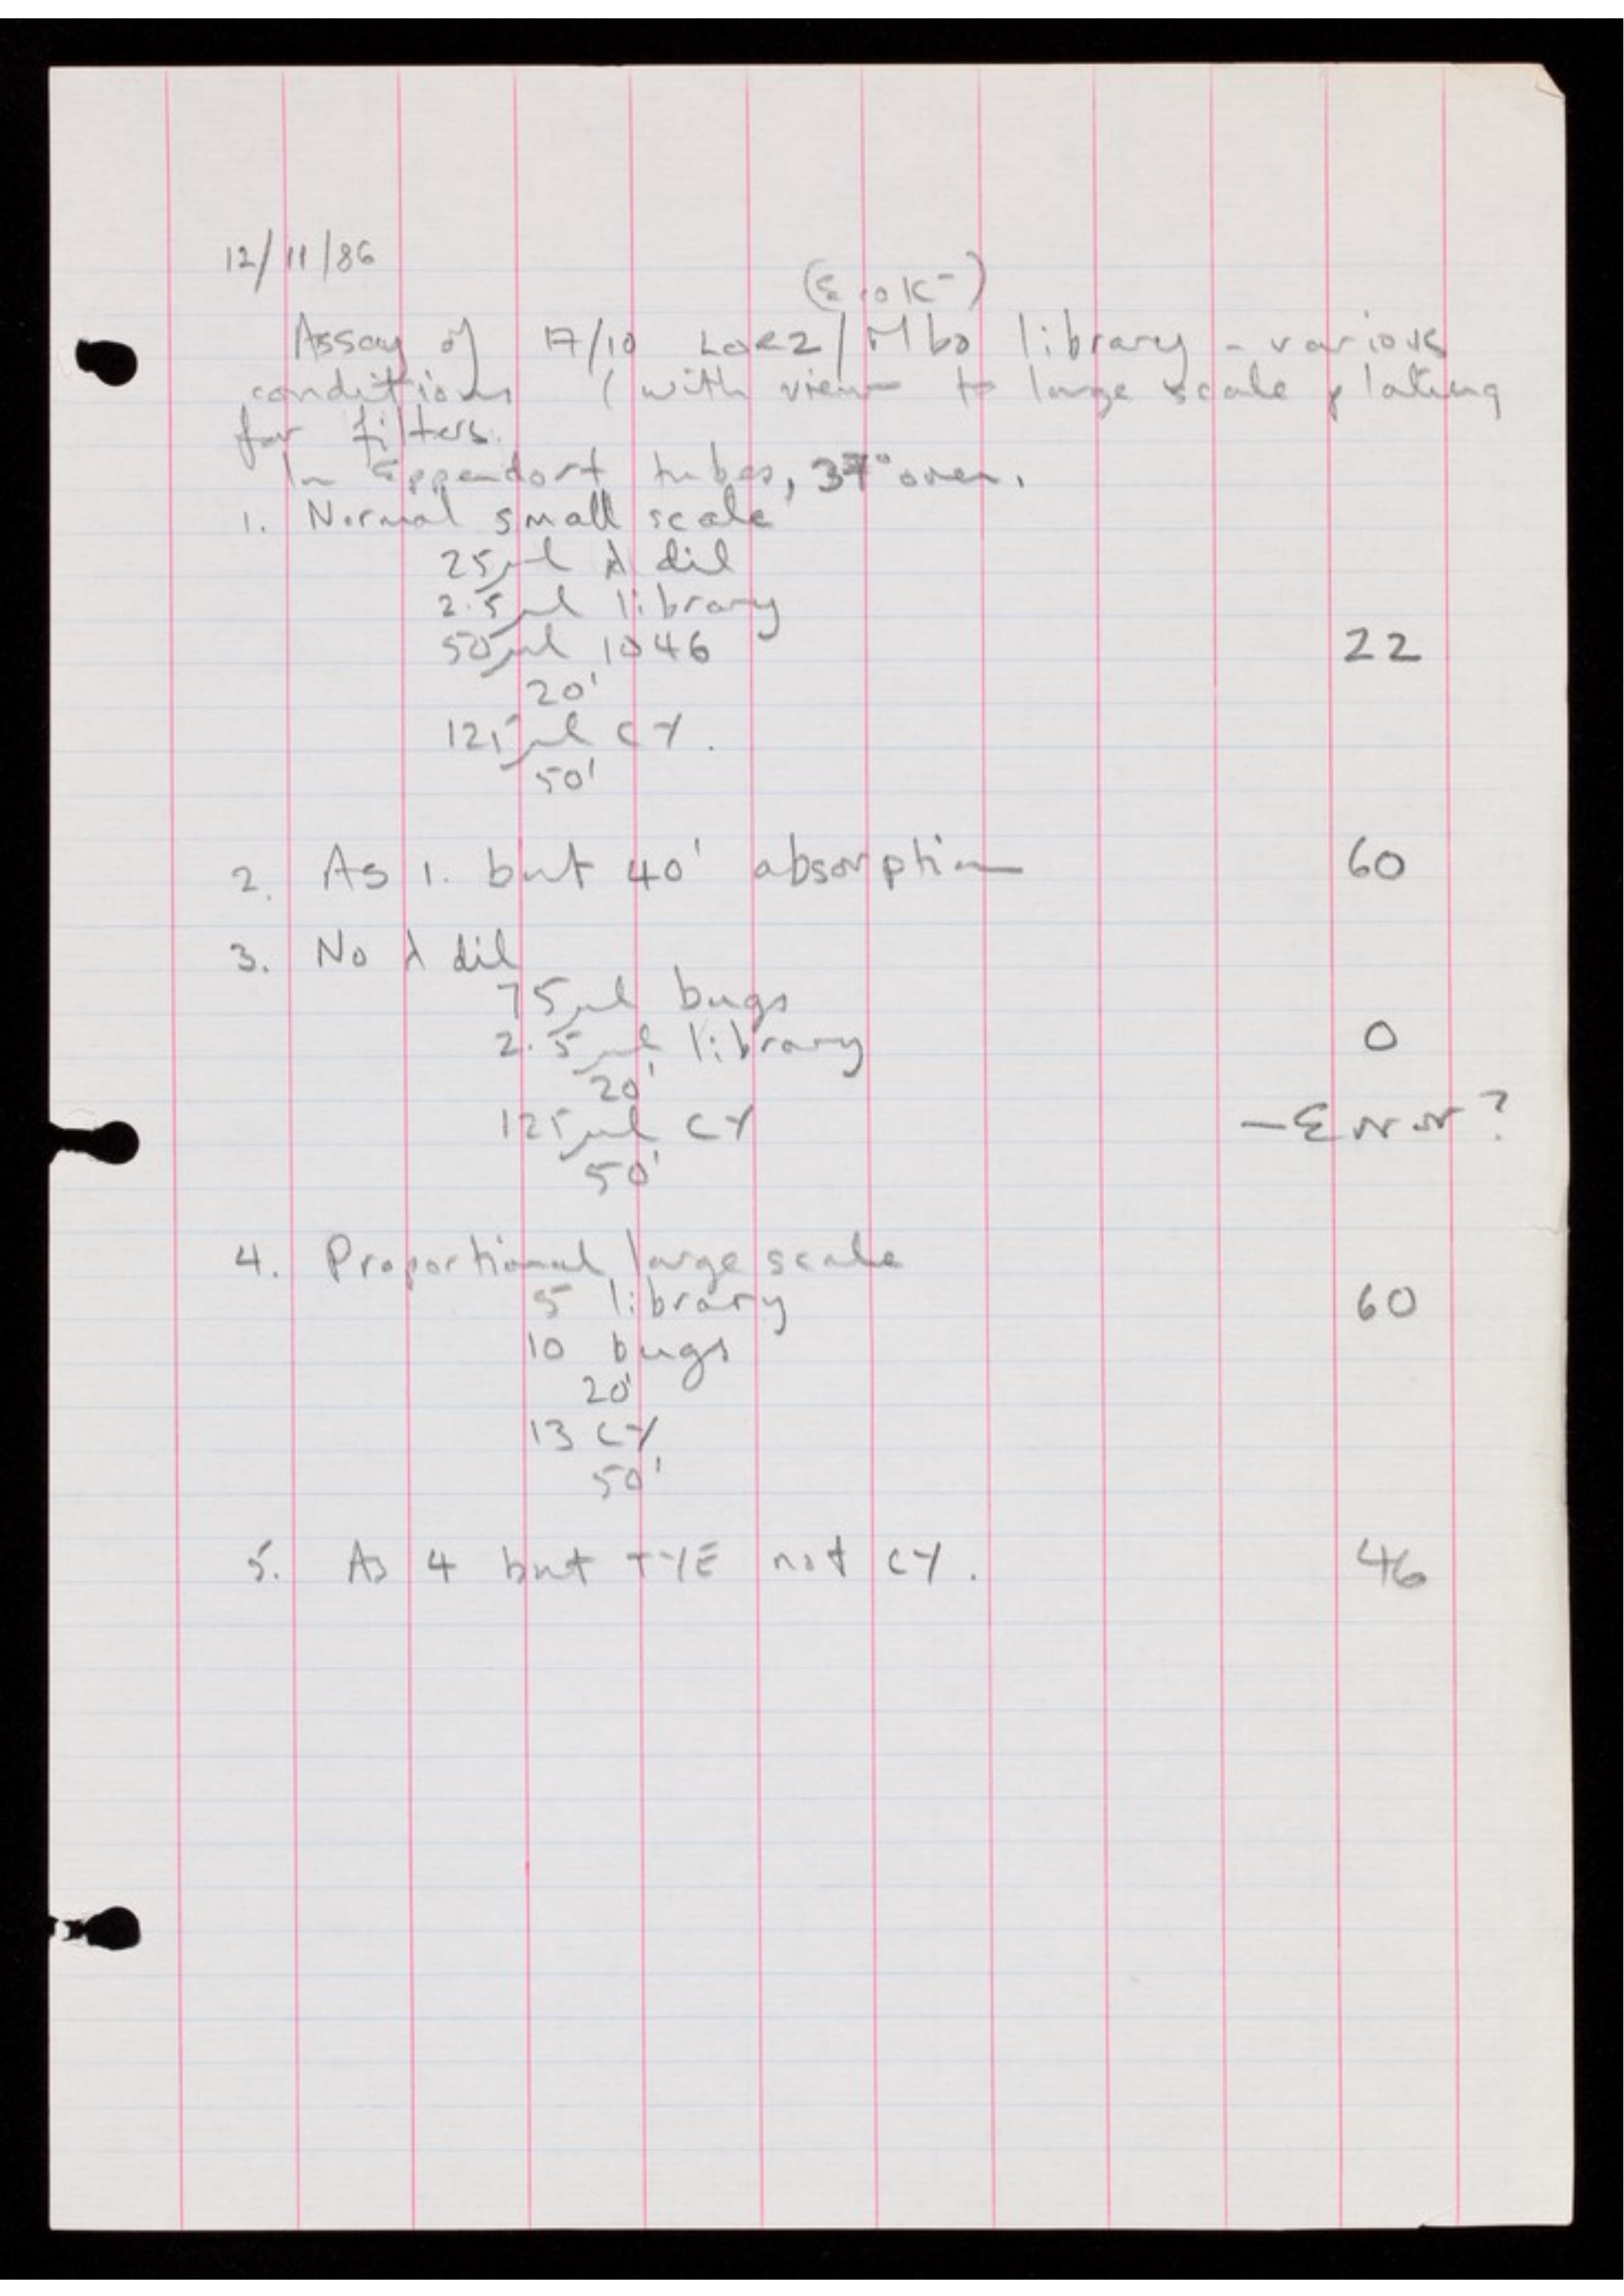 12/11/86
(EcoK-)
Assay of 17/10 Lor2/Mbo library - various
conditions (with view to large scale plating
for filters.
In Eppendorf tubes, 37° oven.
1. Normal small scale
25µl λ dil
2.5µl library
50µl 1046 22
20'
125µl CY.
50'
2. As 1. but 40' absorption 60
3. No λ dil
75µl bugs
2.5µl library 0
20'
125µl CY - Error?
50'
4. Proportional large scale
5 library 60
10 bugs
20'
13 CY
50'
5. As 4 but TYE not CY. 46